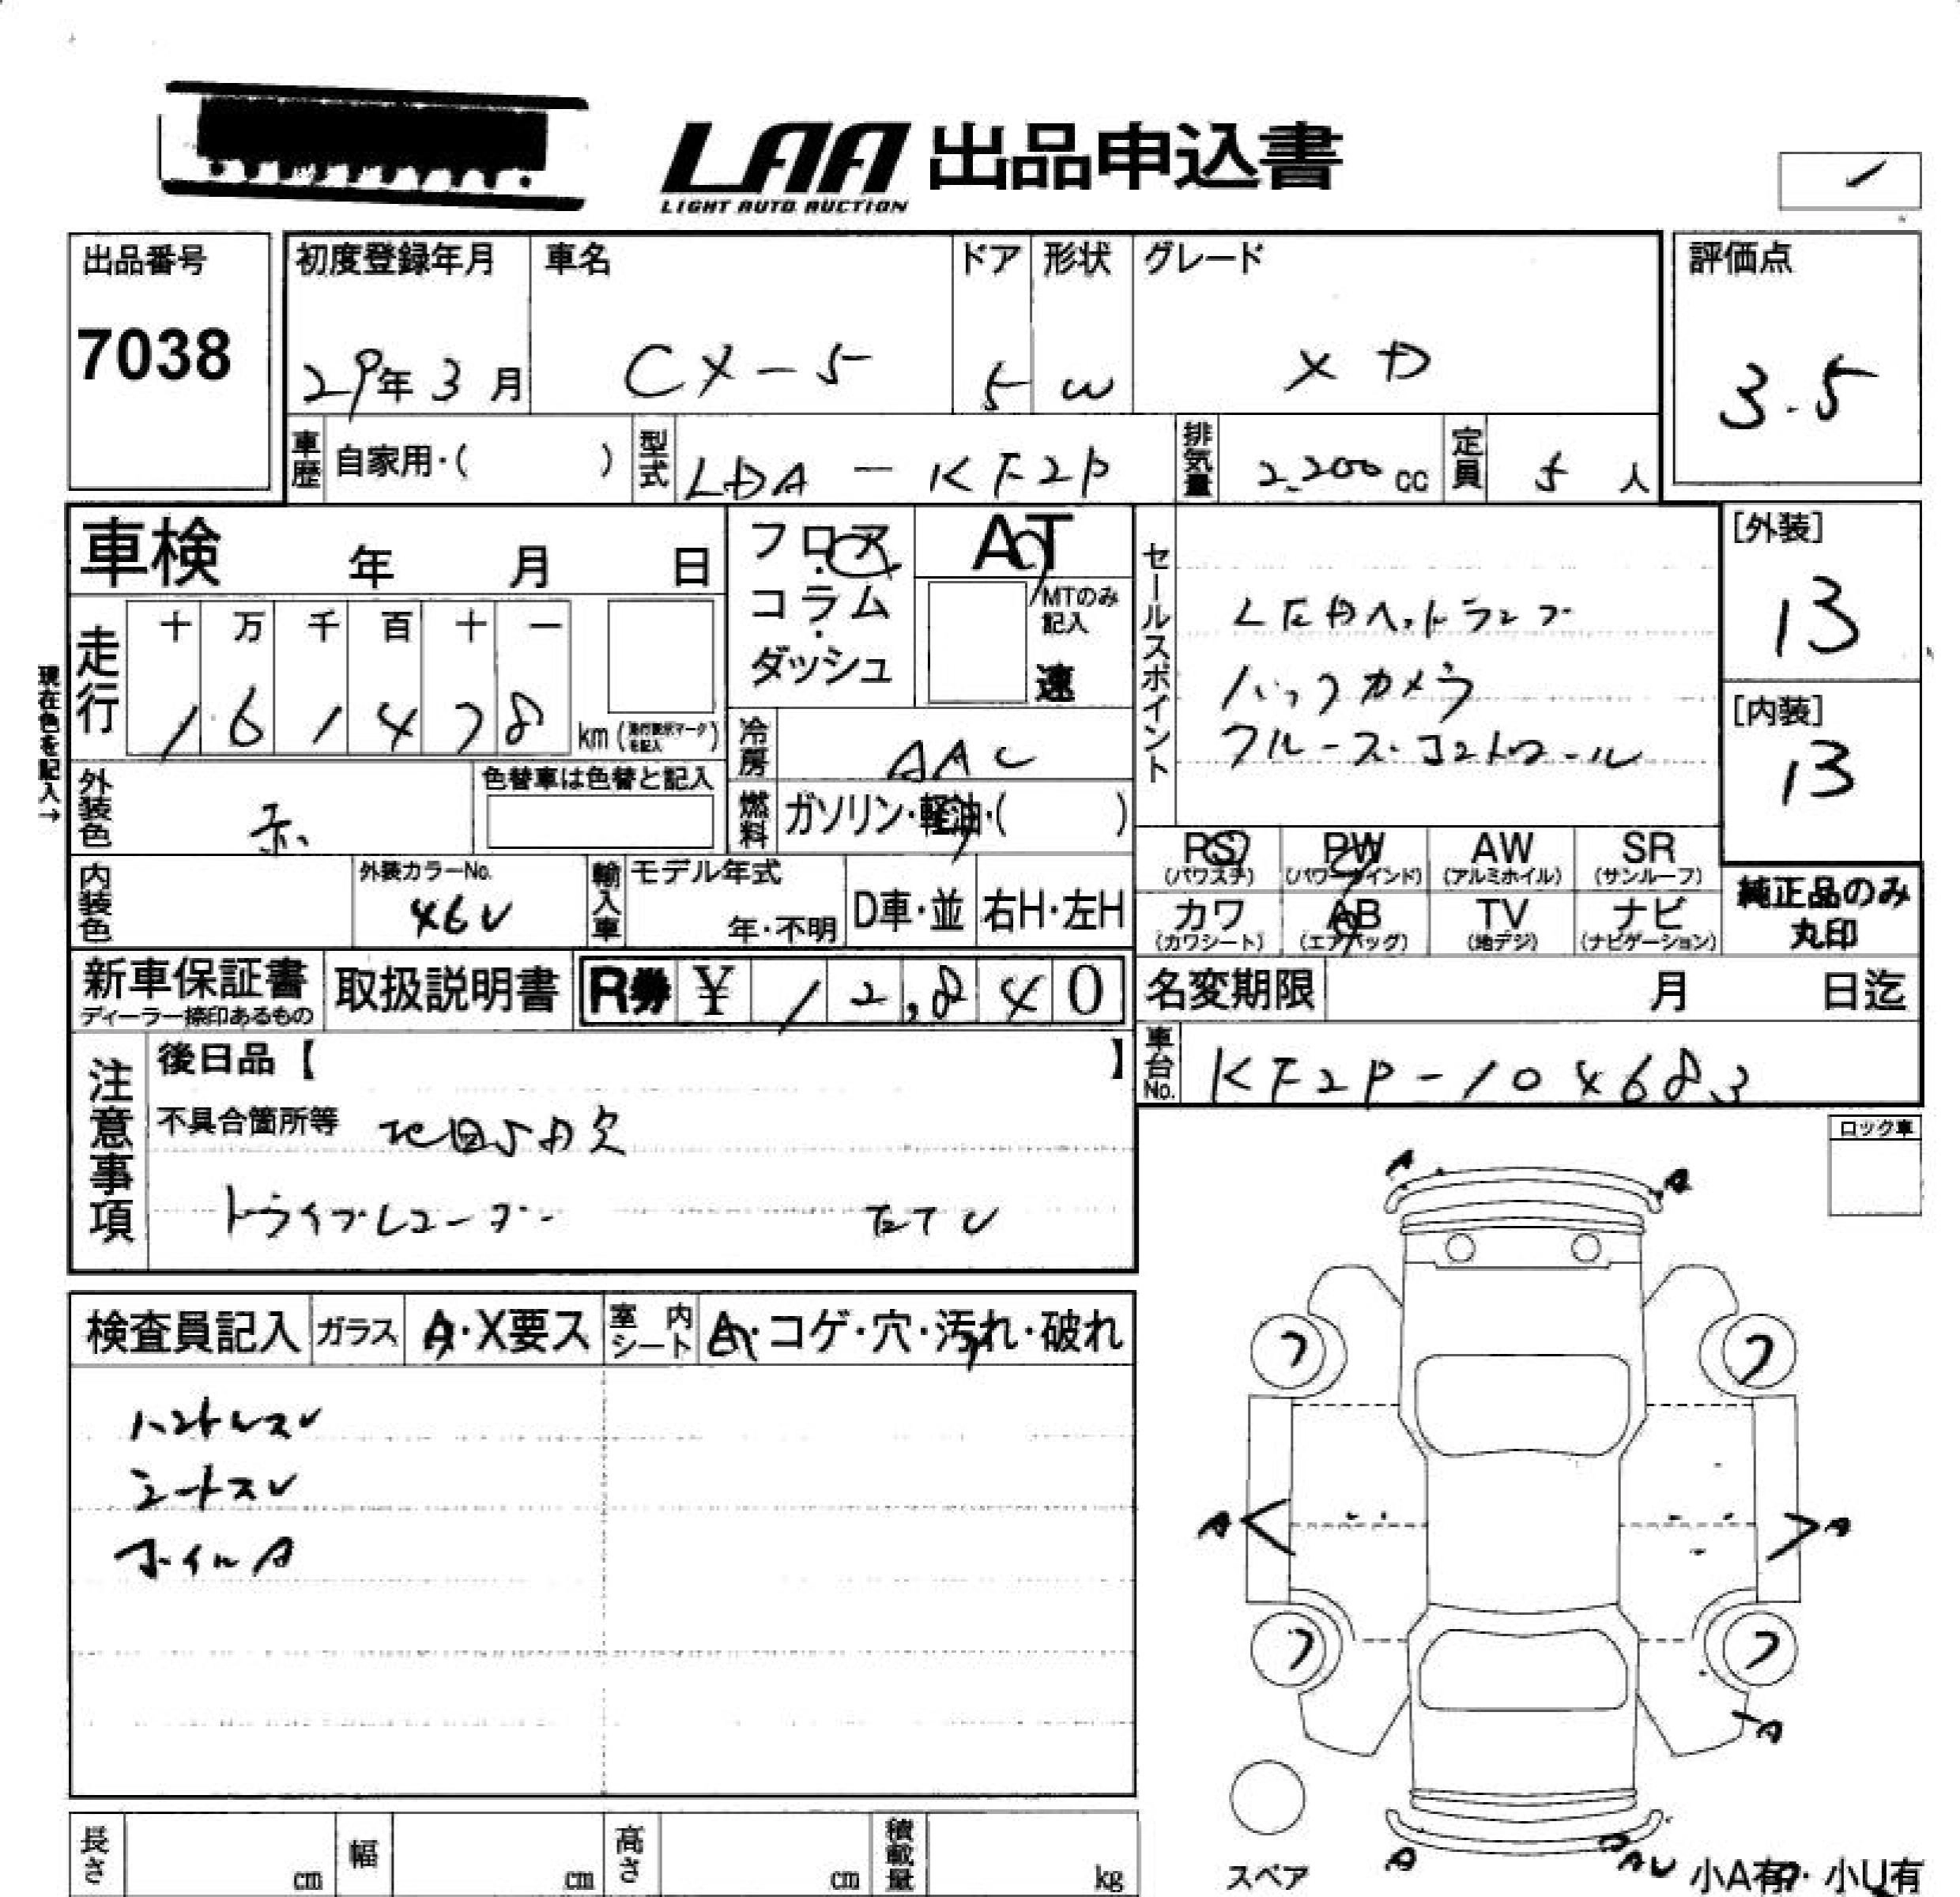 LAA 出品申込書
LIGHT AUTO AUCTION
出品番号
7038
初度登録年月
29年 3月
車名
CX-5
ドア
5
形状
W
グレード
XD
評価点
3.5
車歴 自家用・( )
型式 LDA-KF2P
排気量 2,200 cc
定員 5 人
車検 年 月 日
フロア・コラム・ダッシュ
AT
MTのみ記入
速
セールスポイント
LEDヘッドランプ
バックカメラ
クルーズ・コントロール
[外装]
13
[内装]
13
現在色を記入→
走行 十 万 千 百 十 一
1 6 1 4 7 8 km
冷房 AAC
燃料 ガソリン・軽油・( )
外装色 赤
色替車は色替と記入
内装色
外装カラーNo.
46V
輸入車 モデル年式
年・不明
D車・並 右H・左H
PS (パワステ) PW (パワーウインド) AW (アルミホイル) SR (サンルーフ)
カワ (カワシート) AB (エアバッグ) TV (地デジ) ナビ (ナビゲーション)
純正品のみ丸印
新車保証書
ディーラー捺印あるもの
取扱説明書
R券 ¥ 12,840
名変期限 月 日迄
車台No. KF2P-104683
注意事項
後日品【 】
不具合箇所等 地図SD欠
ドライブレコーダー ETC
ロック車
検査員記入 ガラス A・X要ス 室内シート A・コゲ・穴・汚れ・破れ
ハンドルスレ
シートスレ
ホイルA
A A
フ フ
A A
フ フ
A
A AU
スペア
小A有・小U有
長さ cm 幅 cm 高さ cm 積載量 kg